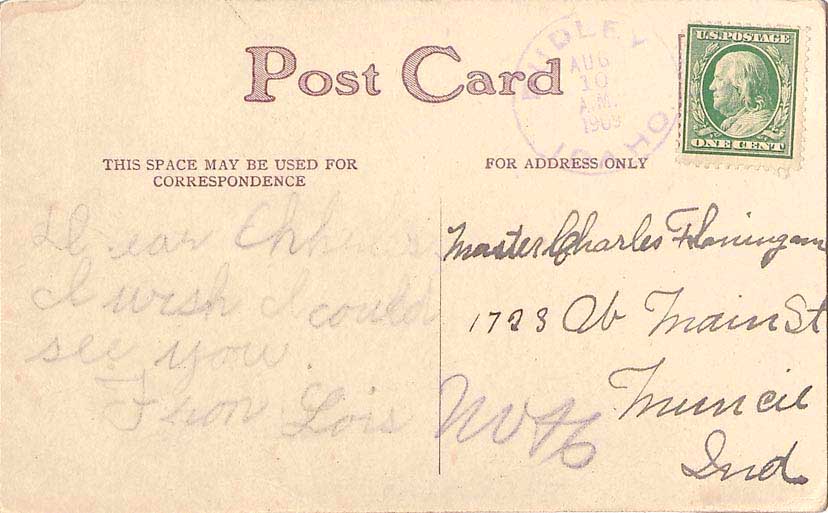 Post Card
UDLEY
AUG
10
A.M.
1909
IDAHO
U.S. POSTAGE
ONE CENT
THIS SPACE MAY BE USED FOR
CORRESPONDENCE
FOR ADDRESS ONLY
Dear
I wish I could
see you
From Lois
Master Charles Flaningam
1723 W Main St
Muncie
Ind.